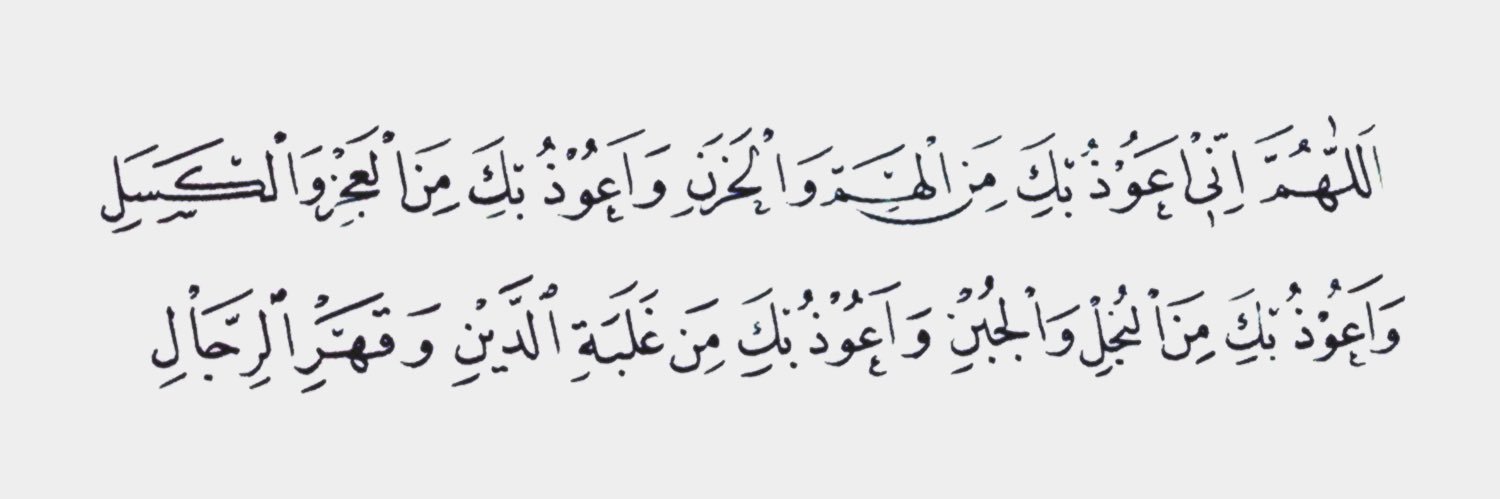 اَللّٰهُمَّ اِنِّىْ اَعُوْذُ بِكَ مِنَ الْهَمِّ وَالْحَزَنِ وَاَعُوْذُ بِكَ مِنَ الْعَجْزِ وَالْكَسَلِ
وَاَعُوْذُ بِكَ مِنَ الْبُخْلِ وَالْجُبْنِ وَاَعُوْذُ بِكَ مِنْ غَلَبَةِ الدَّيْنِ وَقَهْرِ الرِّجَالِ